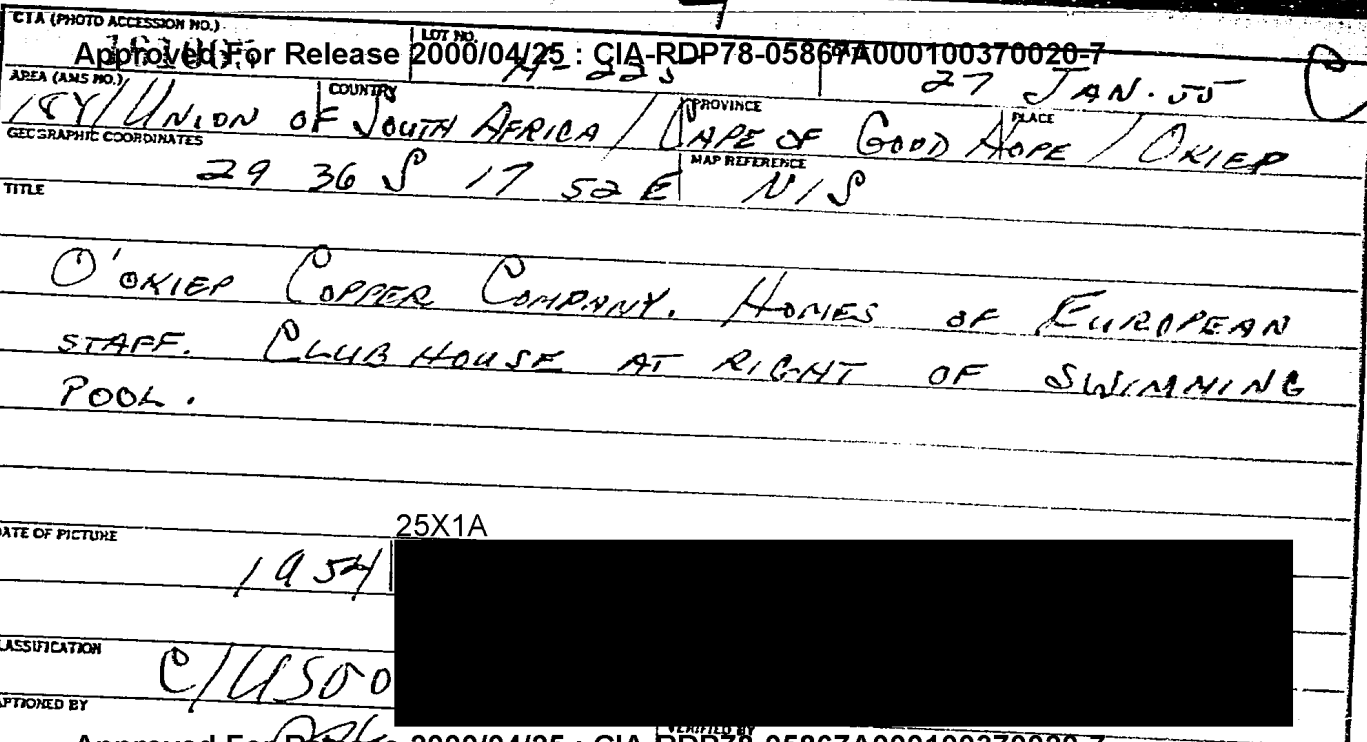 CIA (PHOTO ACCESSION NO.) LOT NO.
Approved For Release 2000/04/25 : CIA-RDP78-05867A000100370020-7
27 JAN. 55 C
AREA (AMS NO.) COUNTRY PROVINCE PLACE
UNION OF SOUTH AFRICA / CAPE OF GOOD HOPE / OKIEP
GEOGRAPHIC COORDINATES MAP REFERENCE
29 36 S 17 52 E N/S
TITLE
O'OKIEP COPPER COMPANY. HOMES OF EUROPEAN
STAFF. CLUB HOUSE AT RIGHT OF SWIMMING
POOL.
25X1A
DATE OF PICTURE
1954
CLASSIFICATION
C/USOO
APTIONED BY VERIFIED BY
Approved For Release 2000/04/25 : CIA-RDP78-05867A000100370020-7